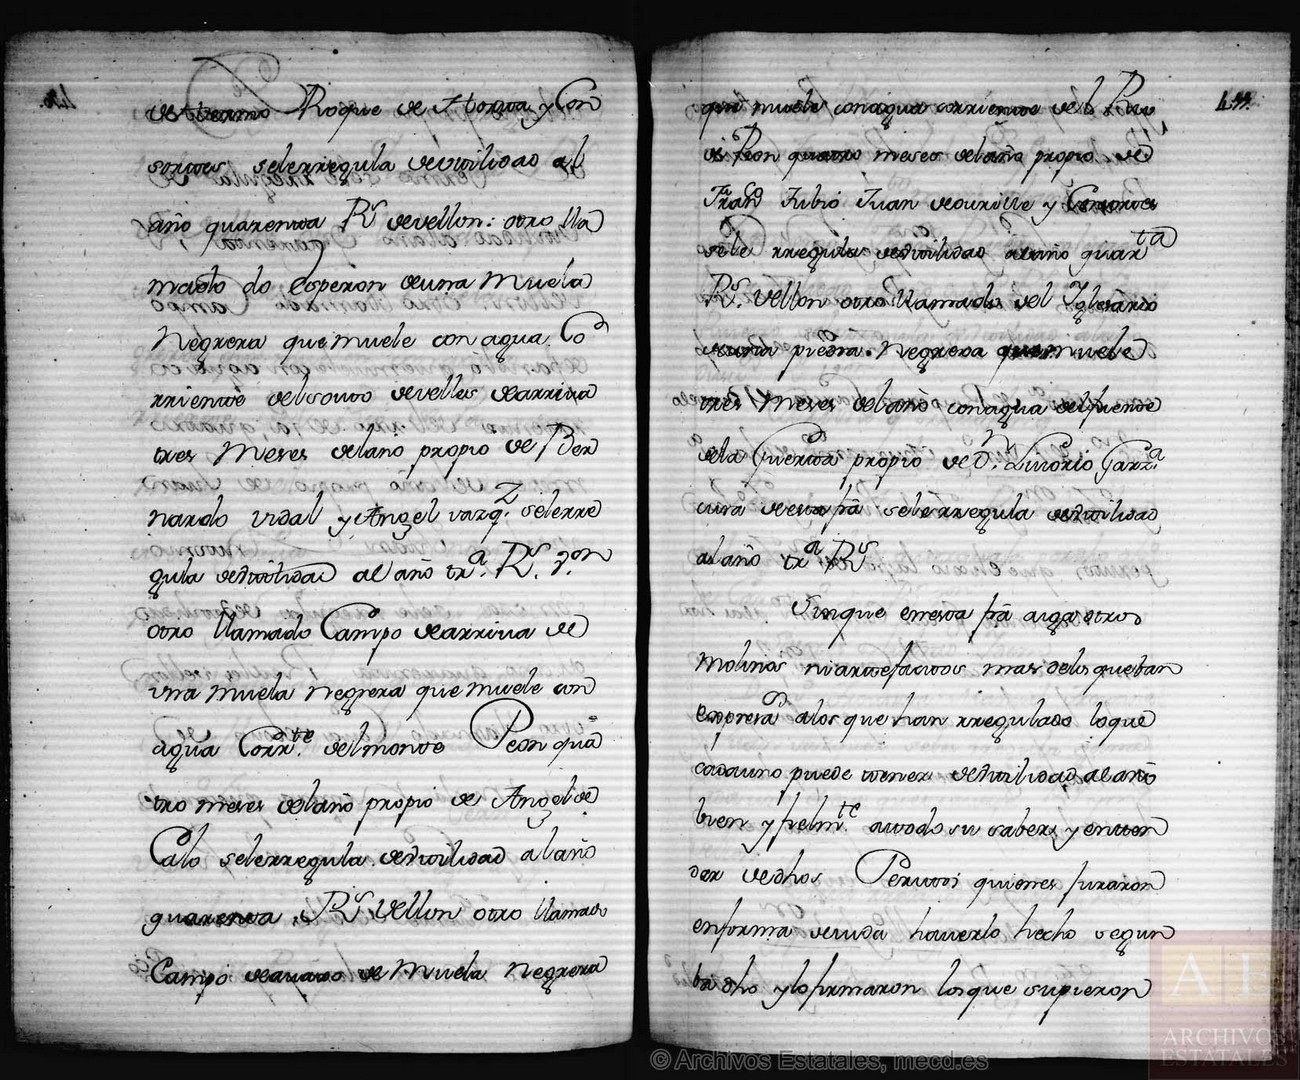 Roque de Atorga y Con
sortes selerregula deutilidad al
año quarenta Rs. devellon: otro lla
mado do Esperon deuna Muela
Negrera que muele con agua Co
rriente delsouto develles dearriva
tres Meses delaño propio de Ber
nardo Vidal y Angel vazqz. selerre
gula deutilidad al año tra. Rs. von
otro llamado Campo dearriva de
una muela Negrera que muele con
agua Corrte. delmonte Peon qua
tro meses delaño propio de Angel de
Calo selerregula deutilidad alaño
quarenta Rs. Vellon otro llamado
Campo deavaxo de Muela Negrera
que muele conagua corriente del
de Peon quatro meses delaño propio de
Franco. Rubio Juan y Consortes
sele rregula deutilidad alaño quarta
Rs. Vellon otro llamado del Yglesario
deuna piedra Negrera que muele
tres Meses delaño conagua delfuente
dela Huerta propio de Dn. Liborio Garza.
cura deesta fra selerregula deutilidad
al año tra Rs
Sinque enesta fra aiga otros
Molinos niartefactos mas delos quevan
expresados alosque han rregulado loque
cadauno puede tener deutilidad alaño
bien y fielmte. atodo su saber, y enten
der dedhos Peritos quienes juraron
enforma devida haverlo hecho segun
ba dho ylofirmaron losque supieron
© Archivos Estatales, mecd.es
AE
ARCHIVOS
ESTATALES